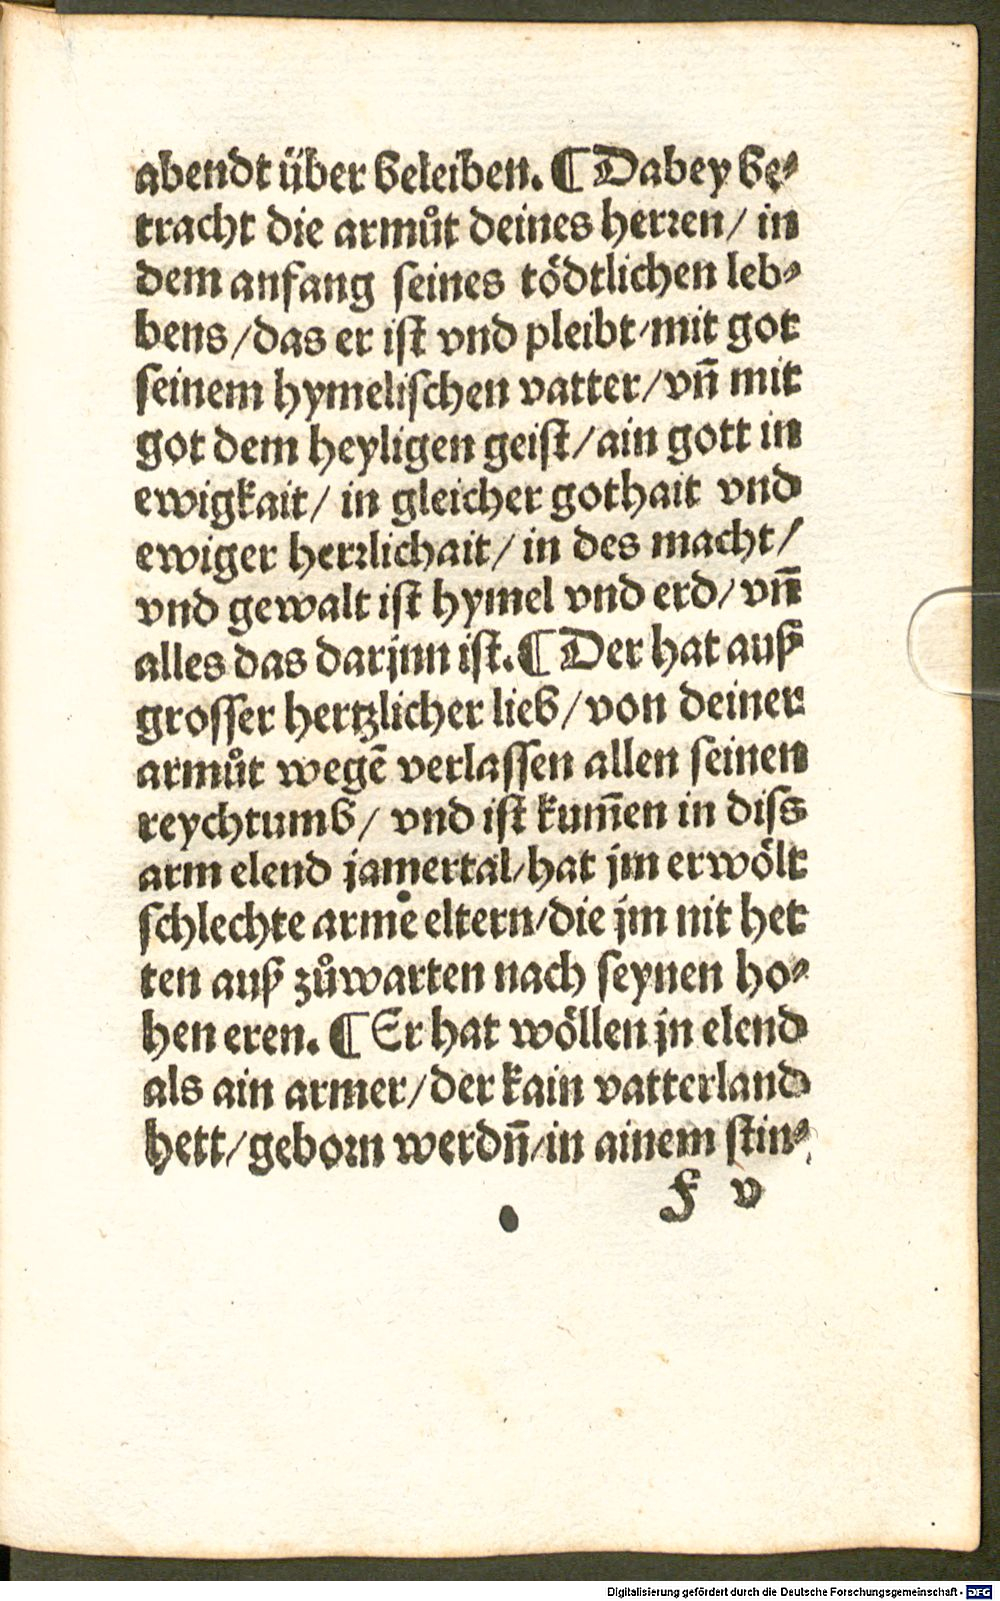 abendt über beleiben. ¶ Dabey be⸗
tracht die armůt deines herꝛen/ in
dem anfang seines tödtlichen leb⸗
bens/das er ist vnd pleibt/mit got
seinem hymelischen vatter/vn̄ mit
got dem heyligen geist/ain gott in
ewigkait/ in gleicher gothait vnd
ewiger herꝛlichait/ in des macht/
vnd gewalt ist hymel vnd erd/ vn̄
alles das darjnn ist. ¶ Der hat auß
grosser hertzlicher lieb/ von deiner
armůt wegē verlassen allen seinen
reychtumb/ vnd ist kum̄en in diss
arm elend jamertal/hat jm erwölt
schlechte arme eltern/die jm nit het
ten auß zůwarten nach seynen ho⸗
hen eren. ¶ Er hat wöllen jn elend
als ain armer/der kain vatterland
hett/geboꝛn werdn̄/in ainem stin⸗
F v
Digitalisierung gefördert durch die Deutsche Forschungsgemeinschaft - DFG